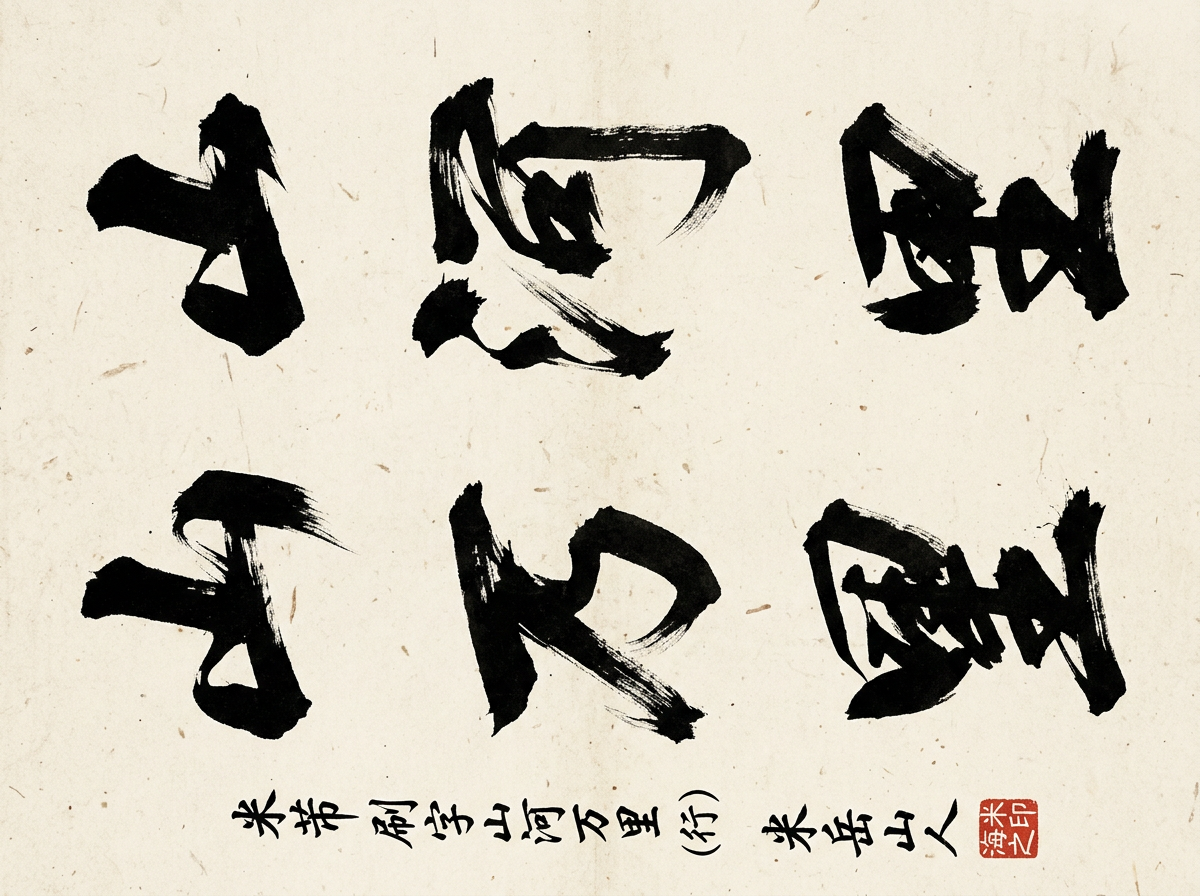 山河里
山万里
米芾刷字山河万里(行) 米岳山人
米印海之